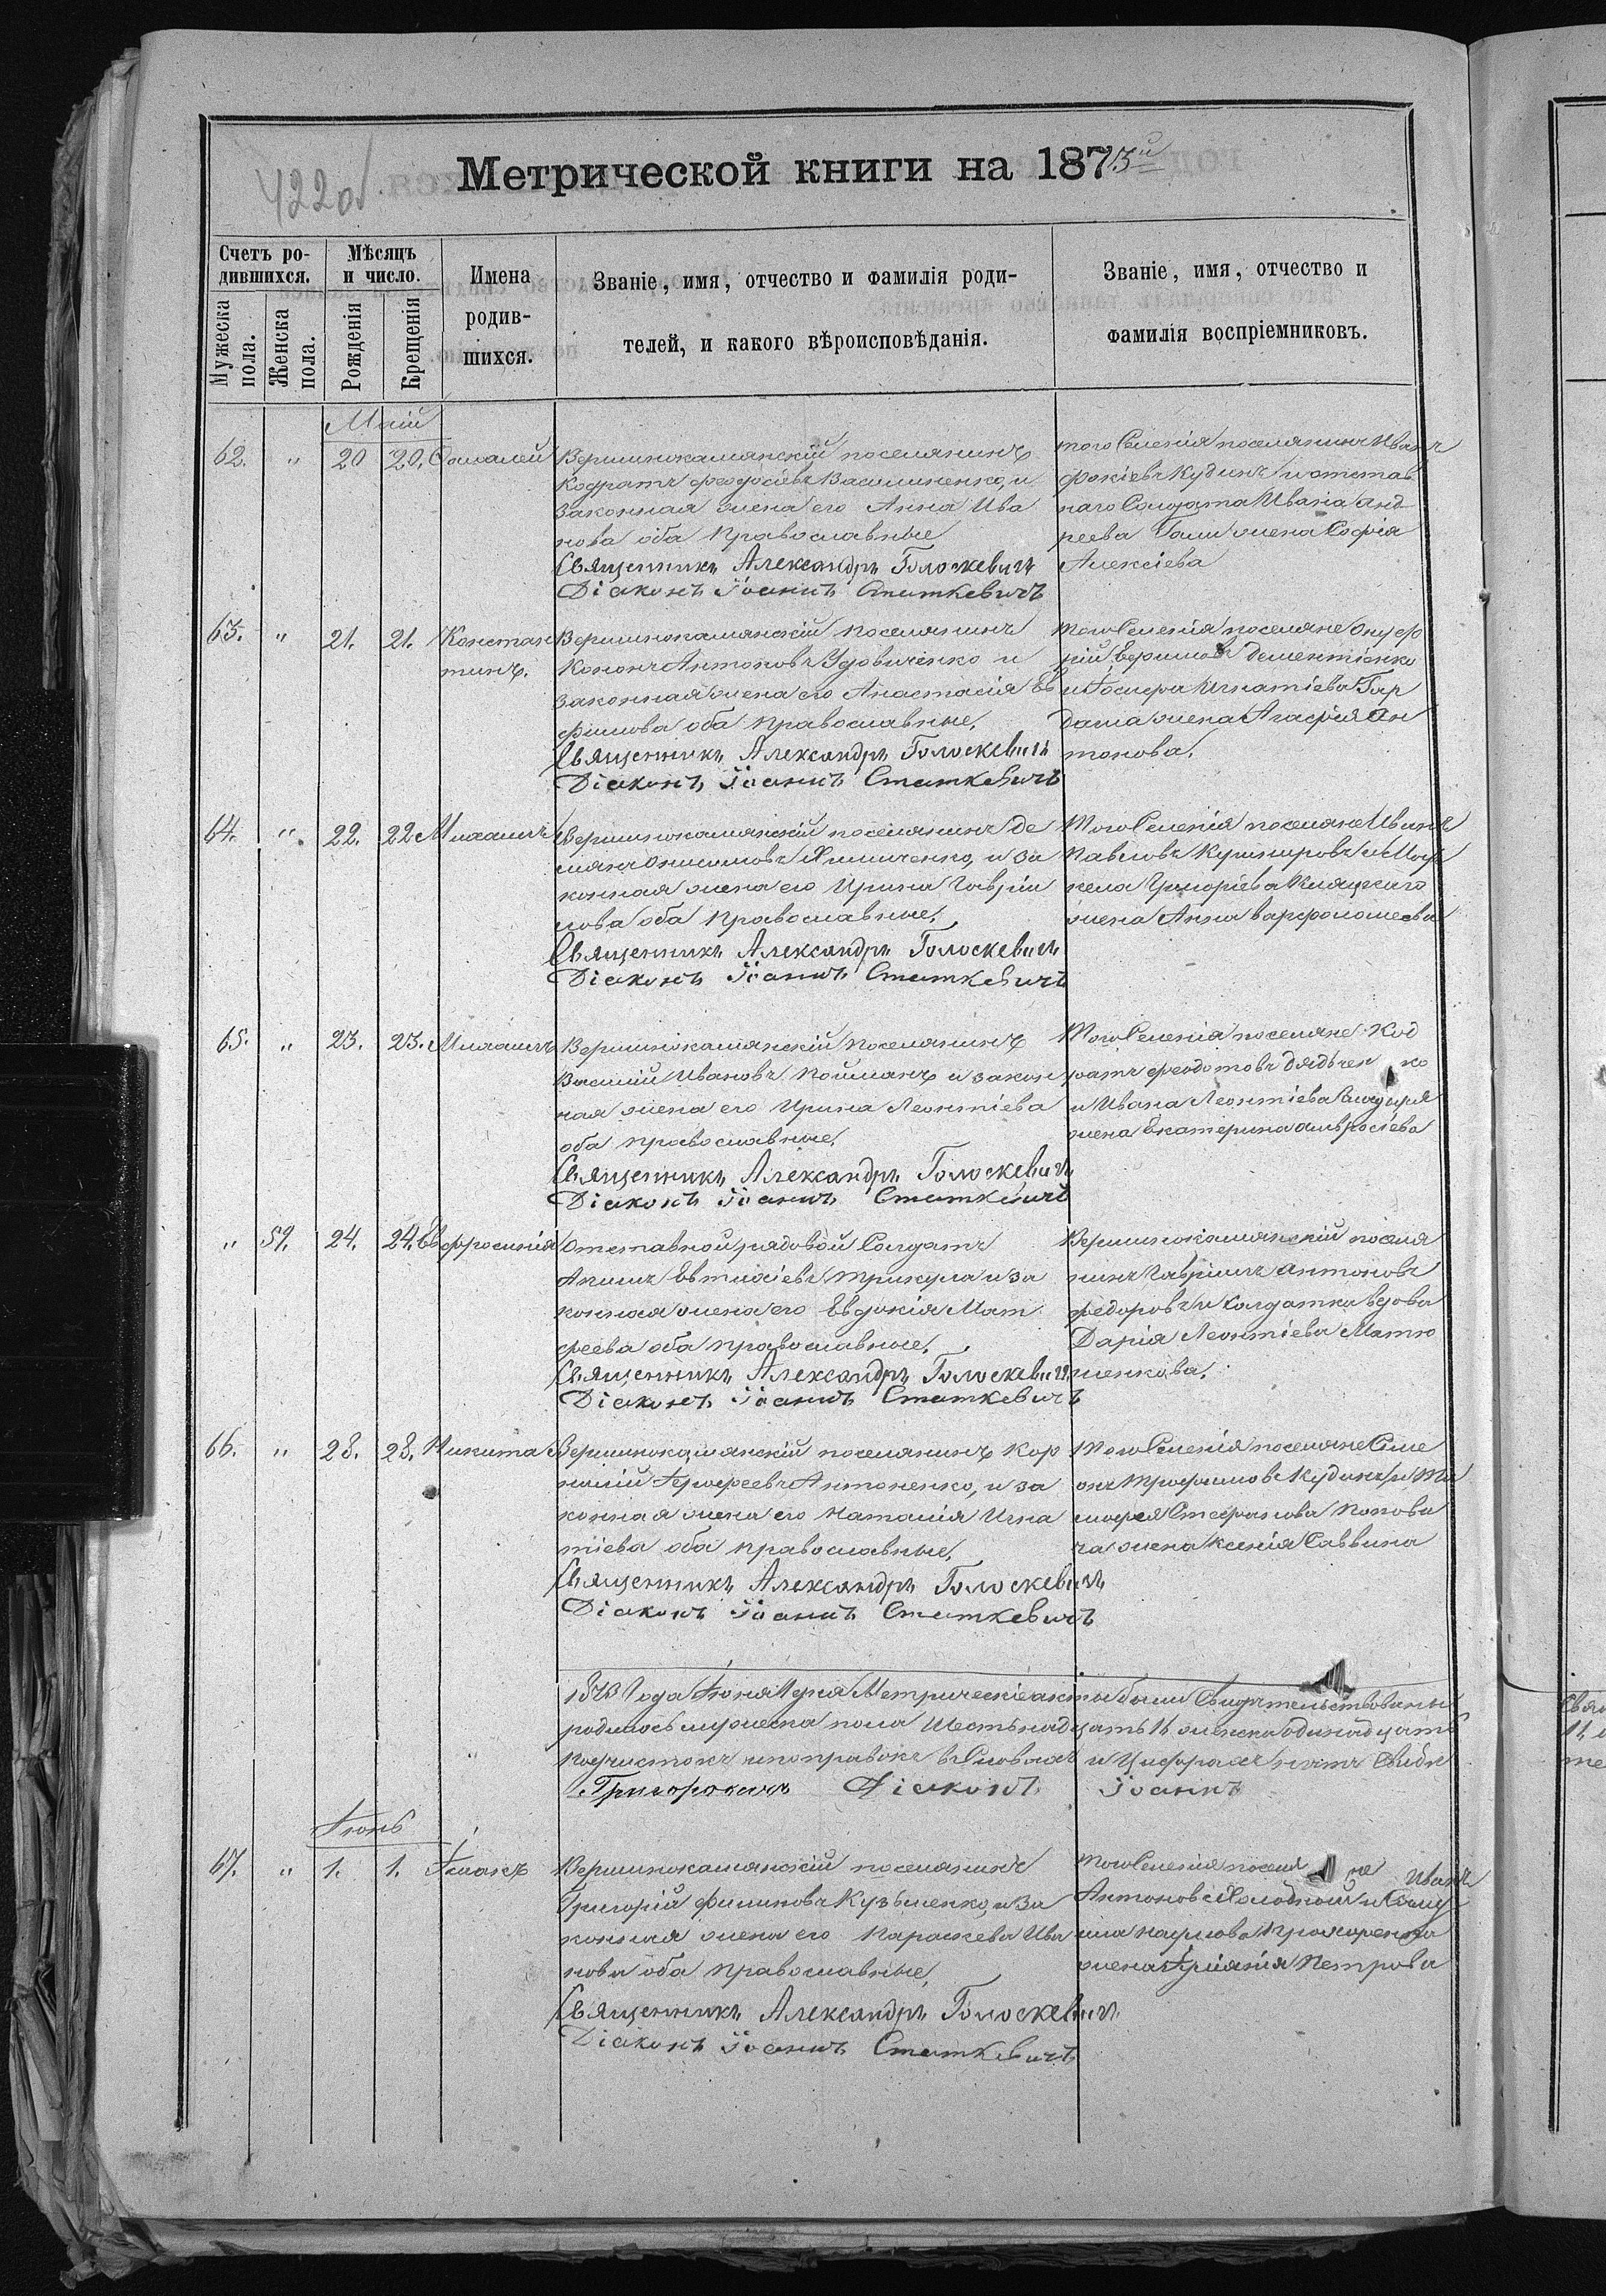 422об
Метрической книги на 1873й
Счетъ родившихся.
Мужеска пола.
Женска пола.
Мѣсяцъ и число.
Рожденія
Крещенія
Имена
родив-
шихся.
Званіе, имя, отчество и фамилія роди-
телей, и какого вѣроисповѣданія.
Званіе, имя, отчество и
фамилія воспріемниковъ.
Маій
62. " 20 20.
Вершинокамянскій поселянинъ
Кодратъ Феодосіевъ Василиненко, и
законная жена его Анна Ива
нова оба православные
Священникъ Александръ Голоскевичъ
Діаконъ Іоаннъ Статкевичъ
того Селенія поселянинъ Иванъ
Фокіевъ Кудинъ и отстав
наго Солдата Ивана Анд
реева жена Софія
Алексіева
63. " 21. 21. Констан
тинъ.
Вершинокамянскій поселянинъ
Кононъ Антоновъ Удовиченко и
законная жена его Анастасія Ев
фимова оба православные,
Священникъ Александръ Голоскевичъ
Діаконъ Іоаннъ Статкевичъ
того Селенія поселяне Онуф
рій Дементіенко
и Іосифа Игнатіева Гар
даша жена Агафія Ан
тонова,
64. " 22. 22 Михаилъ
Вершинокамянскій поселянинъ Де
міянъ Онисимовъ Яхимченко, и за
конная жена его Ирина Гаврiи
лова оба православные,
Священникъ Александръ Голоскевичъ
Діаконъ Іоаннъ Статкевичъ
того Селенія поселяне Иванъ
Павловъ и
Григоріева
жена Анна Варфоломеева
65. " 23. 23. Михаилъ
Вершинокамянскій поселянинъ
Василій Ивановъ Койманъ и закон
ная жена его Ирина Леонтіева
оба православные,
Священникъ Александръ Голоскевичъ
Діаконъ Іоаннъ Статкевичъ
того Селенія поселяне Код
ратъ Феодотовъ Дядьчен ко
и Ивана Леонтіева
жена Екатерина Амвросіева
" 59. 24. 24. Евфросинія
Отставной рядовой Солдатъ
Акимъ Евтихіевъ Трикула и за
конная жена его Евдокія Мат
феева оба православные,
Священникъ Александръ Голоскевичъ
Діаконъ Іоаннъ Статкевичъ
Вершинокамянскій поселя
нинъ Гавріилъ Антоновъ
Федоровъ и Солдатка вдова
Дарія Леонтіева Матю
шенкова.
66. " 28. 28. Никита
Вершинокамянскій поселянинъ Кор
нилій Ерофеевъ Антоненко, и за
конная жена его Наталія Игна
тіева оба православные,
Священникъ Александръ Голоскевичъ
Діаконъ Іоаннъ Статкевичъ
того Селенія поселяне Симе
онъ Трофимовъ Кудинъ и Ти
мофея Стефанова Попови
ча жена Ксенія Саввина
1873 Года Іюня 1 дня Метрическіе акты были Свидѣтельствованы
родилось мужеска пола Шестьнадцать 16 женска одинадцать
подчистокъ и поправокъ в Словахъ и Цифрахъ нѣтъ
Діаконъ Іоаннъ
Іюнь
67. " 1. 1. Ісаакъ
Вершинокамянскій поселянинъ
Григорій Филиповъ Кузьменко, и За
конная жена его Параскева Ива
нова оба православные,
Священникъ Александръ Голоскевичъ
Діаконъ Іоаннъ Статкевичъ
того Селенія поселя не Иванъ
Антоновъ Холодной и
Наумова Прохоренка
жена Іуліанія Петрова